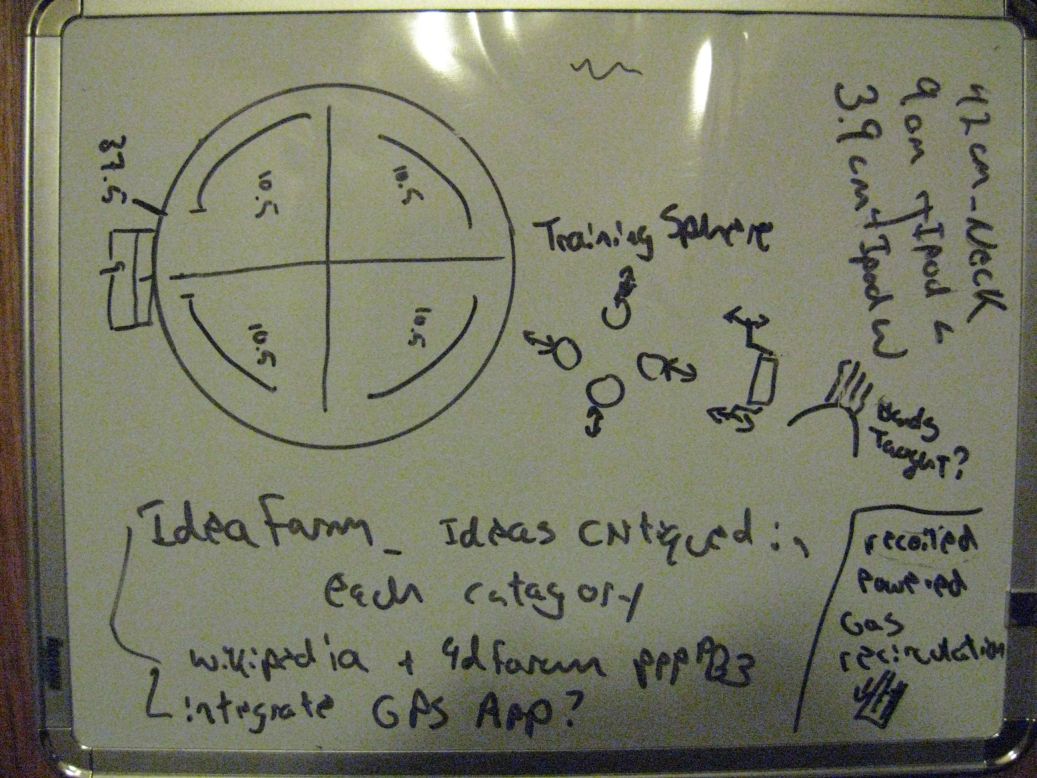 42 cm - Neck
9 cm Ipod L
3.9 cm Ipod W
37.5
10.5
10.5
9
10.5
10.5
Training Sphere
Hands
Taught?
Idea Farm - Ideas CNtiqued in
each catagory
wikipedia +
integrate GPS App?
recoiled
powered
Gas
recirculation